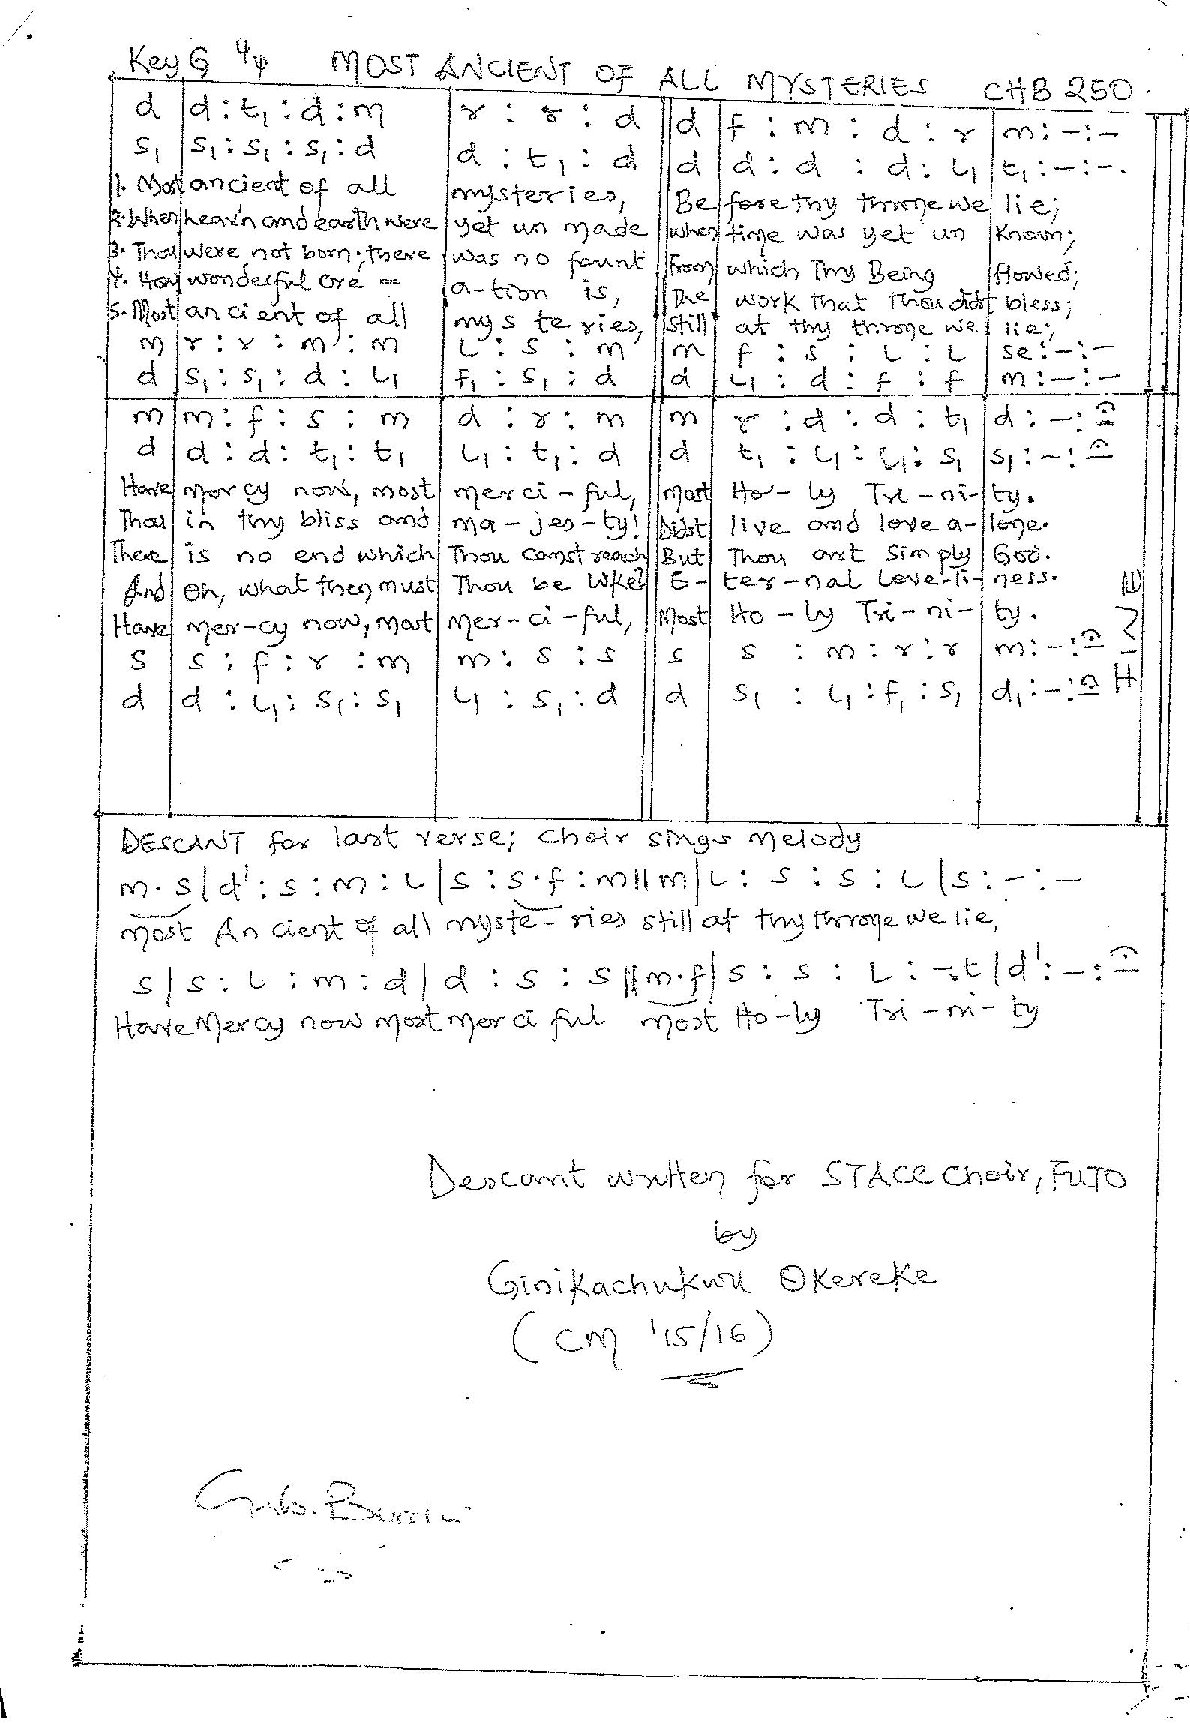 Key G 4/4 MOST ANCIENT OF ALL MYSTERIES CHB 250.
d | d : t₁ : d : m | r : r : d || d | f : m : d : r | m : - : -
s₁ | s₁ : s₁ : s₁ : d | d : t₁ : d || d | d : d : d : l₁ | t₁ : - : -.
1. Most ancient of all mysteries, Before thy throne we lie;
2. When heav'n and earth were yet un made When time was yet un known;
3. Thou were not born; there was no fount From which Thy Being flowed;
4. How wonderful cre - a-tion is, The work that Thou didst bless;
5. Most ancient of all mys te ries, Still at thy throne we lie;
m | r : r : m : m | l : s : m || m | f : s : l : l | se : - : -
d | s₁ : s₁ : d : l₁ | f₁ : s₁ : d || d | l₁ : d : f : f | m : - : -
m | m : f : s : m | d : r : m || m | r : d : d : t₁ | d : - : -
d | d : d : t₁ : t₁ | l₁ : t₁ : d || d | t₁ : l₁ : l₁ : s₁ | s₁ : - : -
Have mercy now, most merci-ful, Most Ho-ly Tri-ni-ty.
Thou in thy bliss and ma-jes-ty! Didst live and love a-lone.
There is no end which Thou canst reach But Thou art Simply God.
And Oh, what then must Thou be like? E-ter-nal Love-li-ness.
Have Mer-cy now, most mer-ci-ful, Most Ho-ly Tri-ni-ty.
s | s : f : r : m | m : s : s || s | s : m : r : r | m : - : -
d | d : l₁ : s₁ : s₁ | l₁ : s₁ : d || d | s₁ : l₁ : f₁ : s₁ | d₁ : - : -
DESCANT for last verse; choir sings melody
m . s | d' : s : m : l | s : s . f : m || m | l : s : s : l | s : - : -
most An cient of all myste-ries still at thy throne we lie,
s | s : l : m : d | d : s : s || m . f | s : s : l : - . t | d' : - : -
Have Mercy now most merci ful most Ho-ly Tri-ni-ty
Descant written for STACC Choir, FUTO
by
Ginikachukwu Okereke
(CM '15/16)